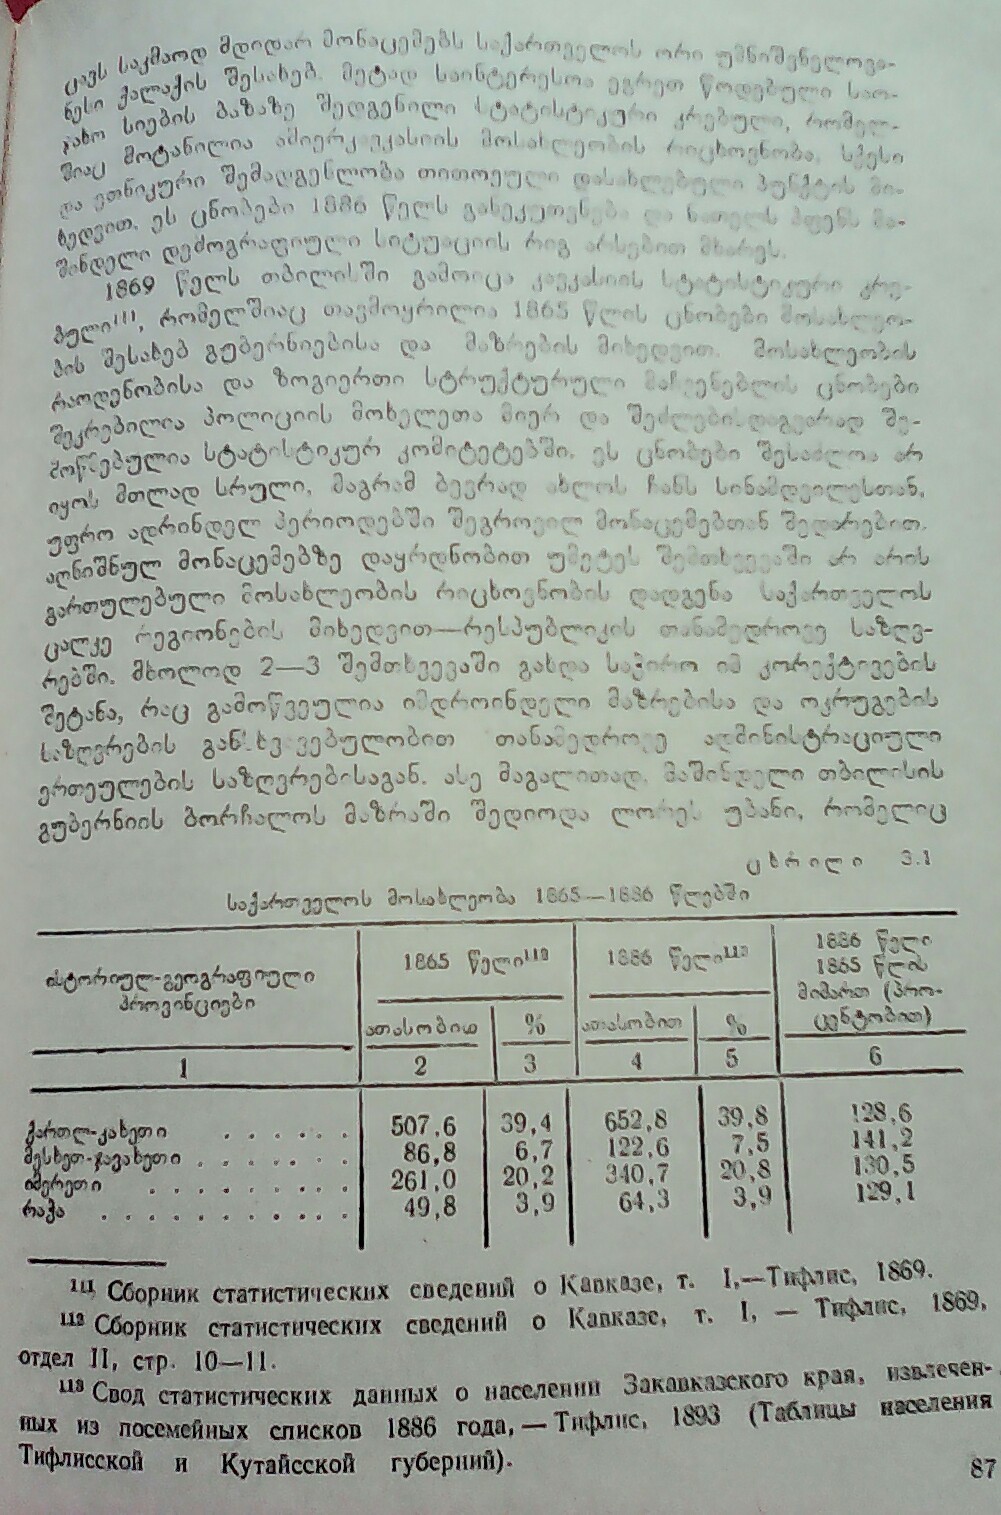 ცავს საკმაოდ მდიდარ მონაცემებს საქართველოს ორი უმნიშვნელოვა-
ნესი ქალაქის შესახებ. მეტად საინტერესოა ეგრეთ წოდებული საო-
ჯახო სიების ბაზაზე შედგენილი სტატისტიკური კრებული, რომელ-
შიაც მოტანილია ამიერკავკასიის მოსახლეობის რიცხოვნობა, სქესი
და ეთნიკური შემადგენლობა თითოეული დასახლებული პუნქტის მი-
ხედვით. ეს ცნობები 1886 წელს განეკუთვნება და ნათელს ჰფენს მა-
შინდელი დემოგრაფიული სიტუაციის რიგ არსებით მხარეს.
1869 წელს თბილისში გამოიცა კავკასიის სტატისტიკური კრე-
ბული¹¹¹, რომელშიაც თავმოყრილია 1865 წლის ცნობები მოსახლეო-
ბის შესახებ გუბერნიებისა და მაზრების მიხედვით. მოსახლეობის
რაოდენობისა და ზოგიერთი სტრუქტურული მაჩვენებლის ცნობები
შეკრებილია პოლიციის მოხელეთა მიერ და შეძლებისდაგვარად შე-
მოწმებულია სტატისტიკურ კომიტეტებში. ეს ცნობები შესაძლოა არ
იყოს მთლად სრული, მაგრამ ბევრად ახლოს ჩანს სინამდვილესთან,
უფრო ადრინდელ პერიოდებში შეგროვილ მონაცემებთან შედარებით.
აღნიშნულ მონაცემებზე დაყრდნობით უმეტეს შემთხვევაში არ არის
გართულებული მოსახლეობის რიცხოვნობის დადგენა საქართველოს
ცალკე რეგიონების მიხედვით—რესპუბლიკის თანამედროვე საზღვ-
რებში. მხოლოდ 2—3 შემთხვევაში გახდა საჭირო იმ კორექტივების
შეტანა, რაც გამოწვეულია იმდროინდელი მაზრებისა და ოკრუგების
საზღვრების განსხვავებულობით თანამედროვე ადმინისტრაციული
ერთეულების საზღვრებისაგან. ასე მაგალითად, მაშინდელი თბილისის
გუბერნიის ბორჩალოს მაზრაში შედიოდა ლორეს უბანი, რომელიც
ცხრილი 3.1
საქართველოს მოსახლეობა 1865—1886 წლებში
ისტორიულ-გეოგრაფიული პროვინციები 1865 წელი¹¹² 1886 წელი¹¹³ 1886 წელი 1865 წლის მიმართ (პრო-ცენტობით)
ათასობით % ათასობით %
1 2 3 4 5 6
ქართლ-კახეთი . . . . . . 507,6 39,4 652,8 39,8 128,6
მესხეთ-ჯავახეთი . . . . . . . 86,8 6,7 122,6 7,5 141,2
იმერეთი . . . . . . . . . 261,0 20,2 340,7 20,8 130,5
რაჭა . . . . . . . . . . . 49,8 3,9 64,3 3,9 129,1
¹¹¹ Сборник статистических сведений о Кавказе, т. I,—Тифлис, 1869.
¹¹² Сборник статистических сведений о Кавказе, т. I, — Тифлис, 1869,
отдел II, стр. 10—11.
¹¹³ Свод статистических данных о населении Закавказского края, извлечен-
ных из посемейных списков 1886 года, — Тифлис, 1893 (Таблицы населения
Тифлисской и Кутайсской губерний).
87